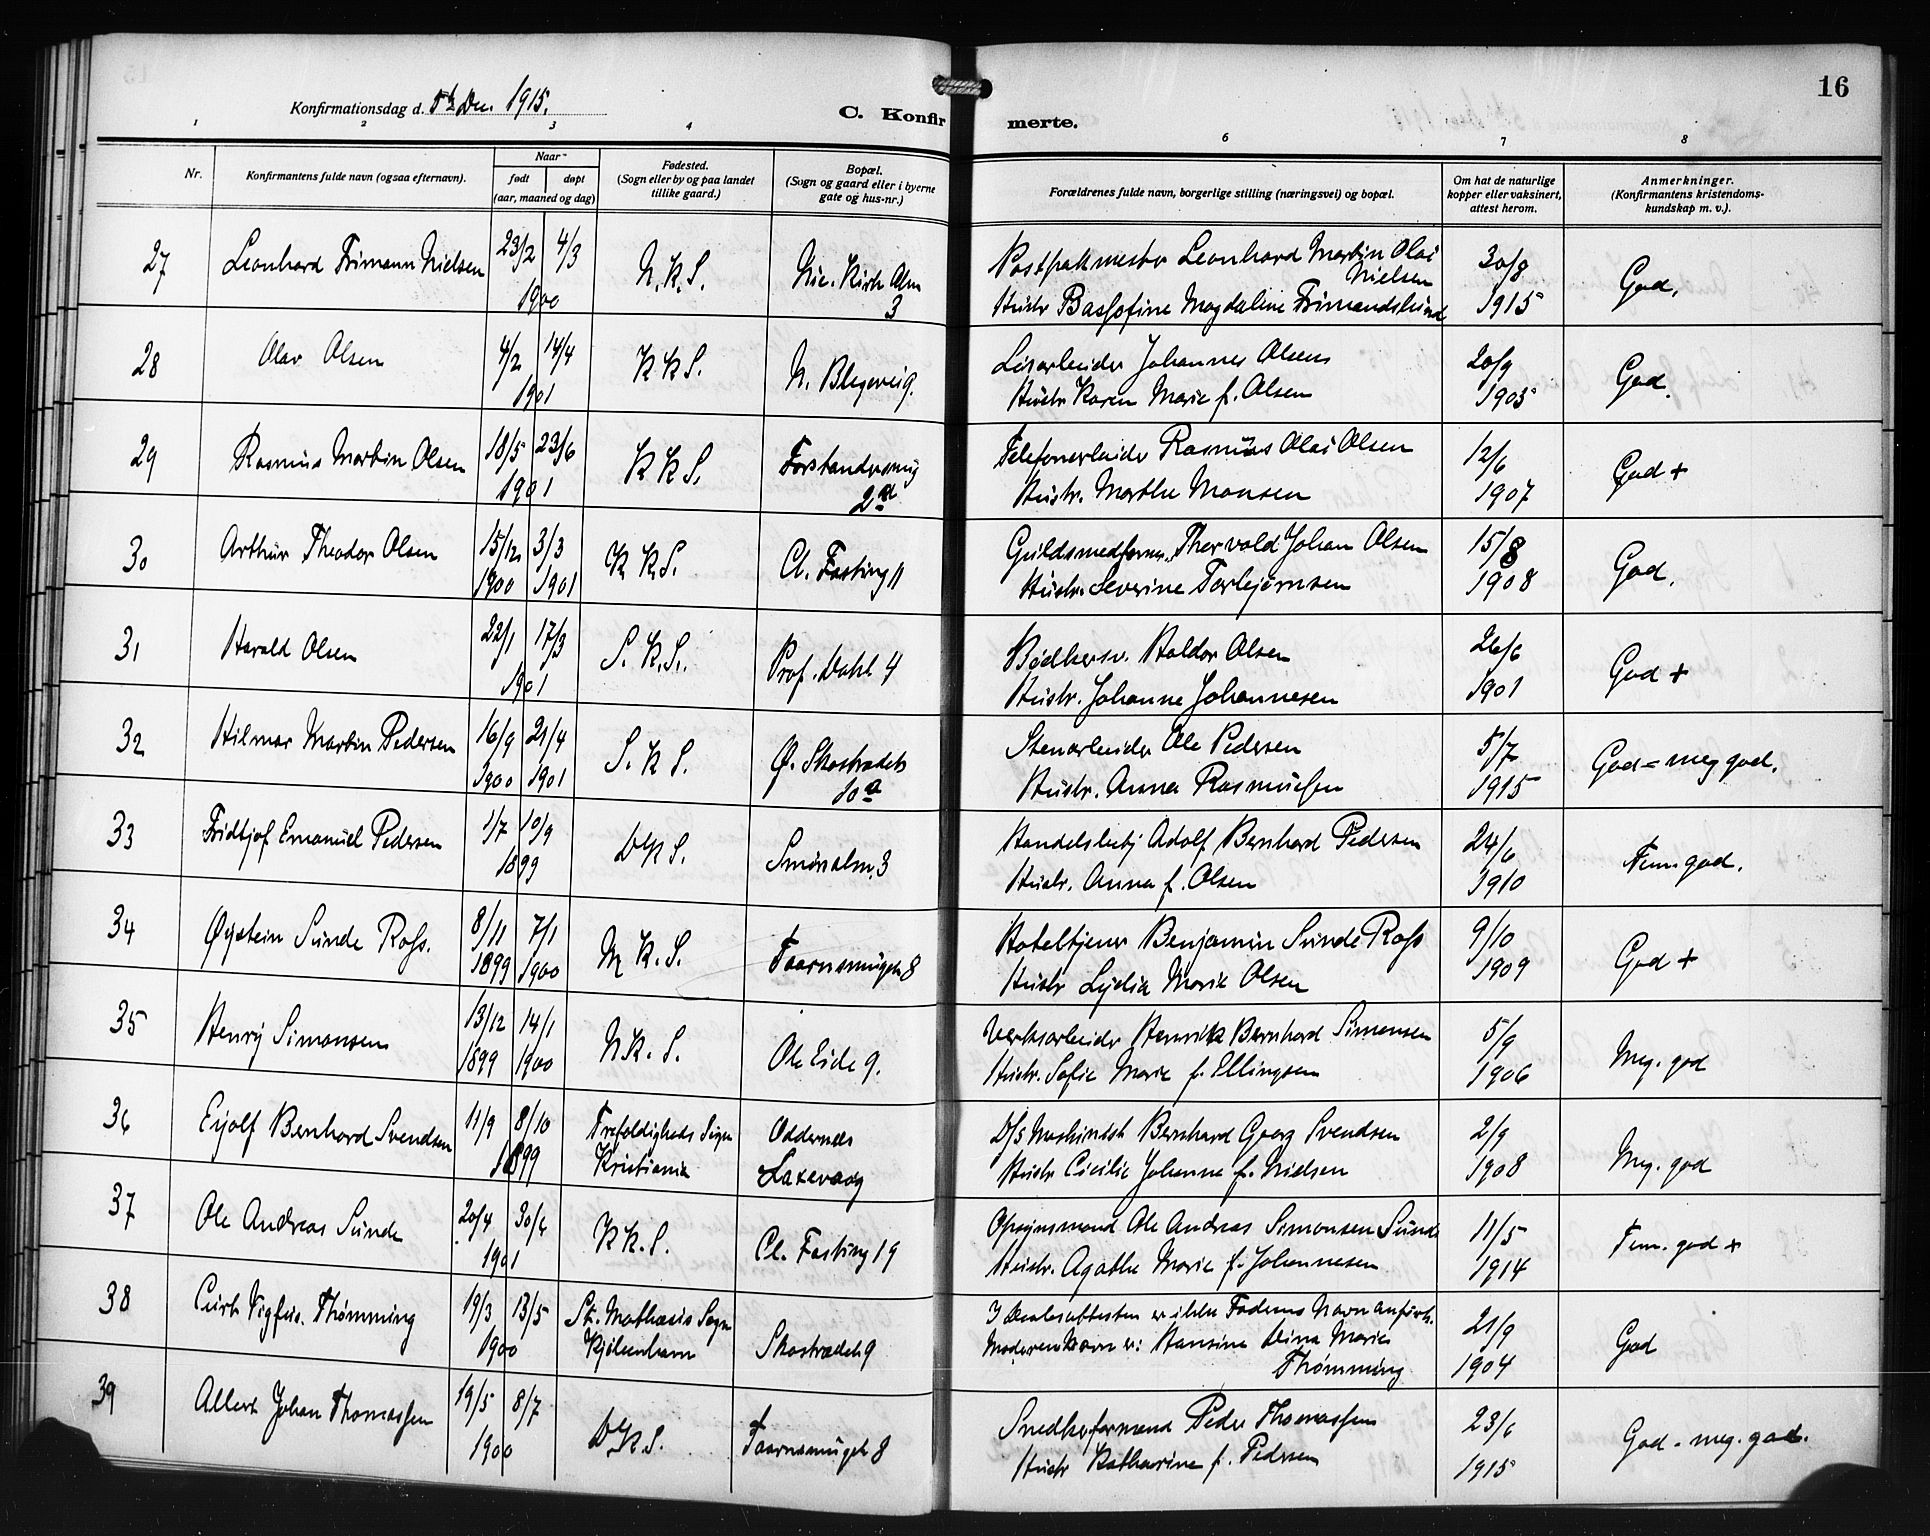 16
Konfirmationsdag d. 5te Dec. 1915.
C. Konfirmerte.
1 2 3 4 6 7 8
Nr.
Konfirmantens fulde navn (ogsaa efternavn).
Naar
født døpt
(aar, maaned og dag)
Fødested.
(Sogn eller by og paa landet
tillike gaard.)
Bopæl.
(Sogn og gaard eller i byerne
gate og hus-nr.)
Forældrenes fulde navn, borgerlige stilling (næringsvei) og bopæl.
Om hat de naturlige
kopper eller vaksinert,
attest herom.
Anmerkninger.
(Konfirmantens kristendoms-
kundskap m. v.).
27 Leonhard Frimann Nielsen 23/2 4/3 N.K.S. Nic. Kirk Alm 3
1900
Postpakmester Leonhard Martin Olai
Nielsen 30/8 God.
Hustr Bassofine Magdaline Frimandslund 1915
28 Olav Olsen 4/2 14/4 K K S. N. Blegevei 9.
1901
Johannes Olsen 20/9 God.
Hustr Karen Marie f. Olsen 1903
29 Rasmus Martin Olsen 18/5 23/6 K K S. Forstandersmug
1901 2ᵈ
Telefonarbeider Rasmus Olai Olsen 12/6 God +
Hustr. Marthe Monsen 1907
30 Arthur Theodor Olsen 15/12 3/3 K K.S. Cl. Fasting 11
1900 1901
Guldsmedform. Thorvald Johan Olsen 15/8 God.
Hustr. Severine Torbjørnsen 1908
31 Harald Olsen 22/1 17/3 S. K. S. Prof. Dahl 4
1901
Bødkersv. Haldor Olsen 26/6 God +
Hustr. Johanne Johannesen 1901
32 Hilmar Martin Pedersen 16/9 21/4 S. K S. Ø. Skostrædet
1900 1901 10ᵃ
Stenarbeider Ole Pedersen 5/7 God = meg god.
Hustr. Anna Rasmussen 1915
33 Fridtjof Emanuel Pedersen 1/7 10/9 DKS. Smørsalm. 3
1899
Handelsbetj Adolf Bernhard Pedersen 24/6 Tem. god.
Hustr. Anna f. Olsen 1910
34 Øystein Sunde Ross. 8/11 7/1 N K. S. Taarnsmuget 8
1899 1900
Hoteltjener Benjamin Sunde Ross 9/10 God +
Hustr Lydia Marie Olsen 1909
35 Henry Simonsen 13/12 14/1 N K. S. Ole Eide 9.
1899 1900
Verksarbeider Henrik Bernhard Simonsen 5/9 Meg. god
Hustr. Sofie Marie f. Ellingsen 1906
36 Eyolf Bernhard Svendsen 11/9 8/10 Trefoldigheds Sogn Oddernes
1899 Kristiania Laxevaag
D/S Maskinist Bernhard Georg Svendsen 2/9 Meg. god
Hustr Cicilie Johanne f. Nielsen 1908
37 Ole Andreas Sunde 20/4 30/6 K K. S. Cl. Fasting 19
1901
Opsynsmand Ole Andreas Simonsen Sunde 11/5 Tem. god +
Hustr. Agathe Marie f. Johannesen 1914
38 Curt Vigfus. Thømming 19/3 13/5 St. Mathæus Sogn Skostrædet 9
1900 Kjøbenhavn
I Daabsattesten er ikke Faderens Navn anført.
Moderen Navn er: Hansine Dina Marie 21/9 God
Thømming 1904
39 Allert Johan Thomassen 19/5 8/7 DK.S. Taarnsmuget 8
1900
Snedkerformand Peder Thomassen 23/6 God - meg. god.
Hustr Katharina f. Pedersen 1915